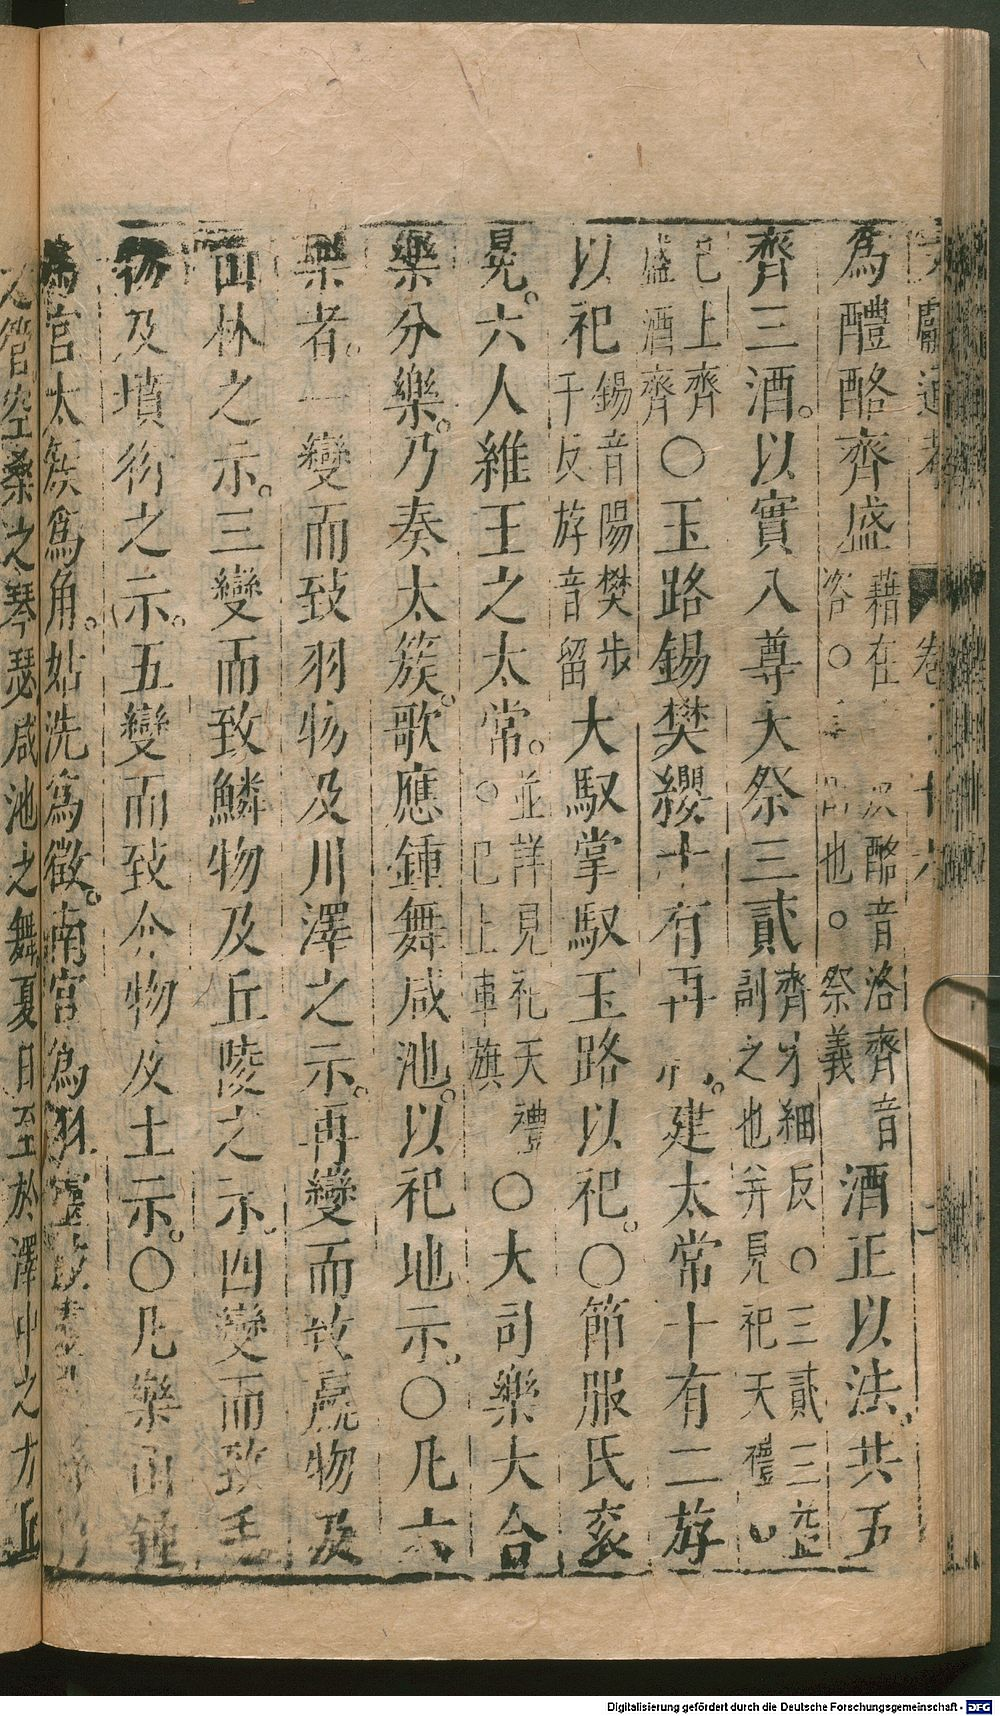 文獻通考　卷　十六
為醴酪齊盛藉在　洛○　次酪音洛齊音　也○祭義酒正以法共五
齊三酒以實八尊大祭三貳齊才細反○三貳三益副之也并見祀天禮
已上齊盛酒齊○玉路錫樊纓十有再　建太常十有二斿
以祀錫音陽樊步干反斿音留大馭掌馭玉路以祀○節服氏袞
冕六人維王之太常並詳見祀天禮○已上車旗○大司樂大合
樂分樂乃奏太簇歌應鍾舞咸池以祀地示○凡六
樂者一變而致羽物及川澤之示再變而致臝物及
山林之示三變而致鱗物及丘陵之示四變而致毛
物及墳衍之示五變而致介物及土示○凡樂函鍾
為宮太簇為角姑洗為徵南宮為羽靈鼓
之管空桑之琴瑟咸池之舞夏日至於澤中之方丘
Digitalisierung gefördert durch die Deutsche Forschungsgemeinschaft - DFG